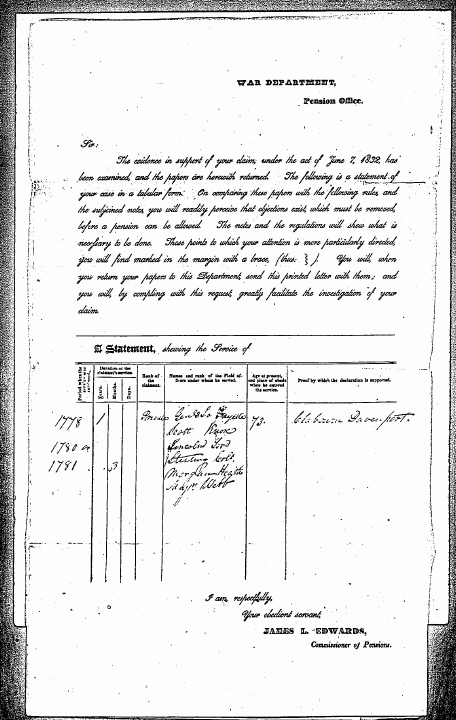 WAR DEPARTMENT,
Pension Office.
Sir,
The evidence in support of your claim, under the act of June 7, 1832, has
been examined, and the papers are herewith returned. The following is a statement of
your case in a tabular form. On comparing these papers with the following rules, and
the subjoined notes, you will readily perceive that objections exist, which must be removed,
before a pension can be allowed. The notes and the regulations will shew what is
necessary to be done. Those points to which your attention is more particularly directed,
you will find marked in the margin with a brace, (thus: } ). You will, when
you return your papers to this Department, send this printed letter with them; and
you will, by complying with this request, greatly facilitate the investigation of your
claim.
A Statement, shewing the Service of
Period when the
Duration of the claimant's service.
Years. Months. Days.
Rank of the claimant.
Names and rank of the Field officers under whom he served.
Age at present, and place of abode when he entered the service.
Proof by which the declaration is supported.
1778 1 Genl La Fayette 73. Claborn Davenport.
Scott Knox
1780 or Lincoln Lord
1781 3 Sterling Cols.
Morgan Heath
Majr. Webb
I am, respectfully,
Your obedient servant,
JAMES L. EDWARDS,
Commissioner of Pensions.